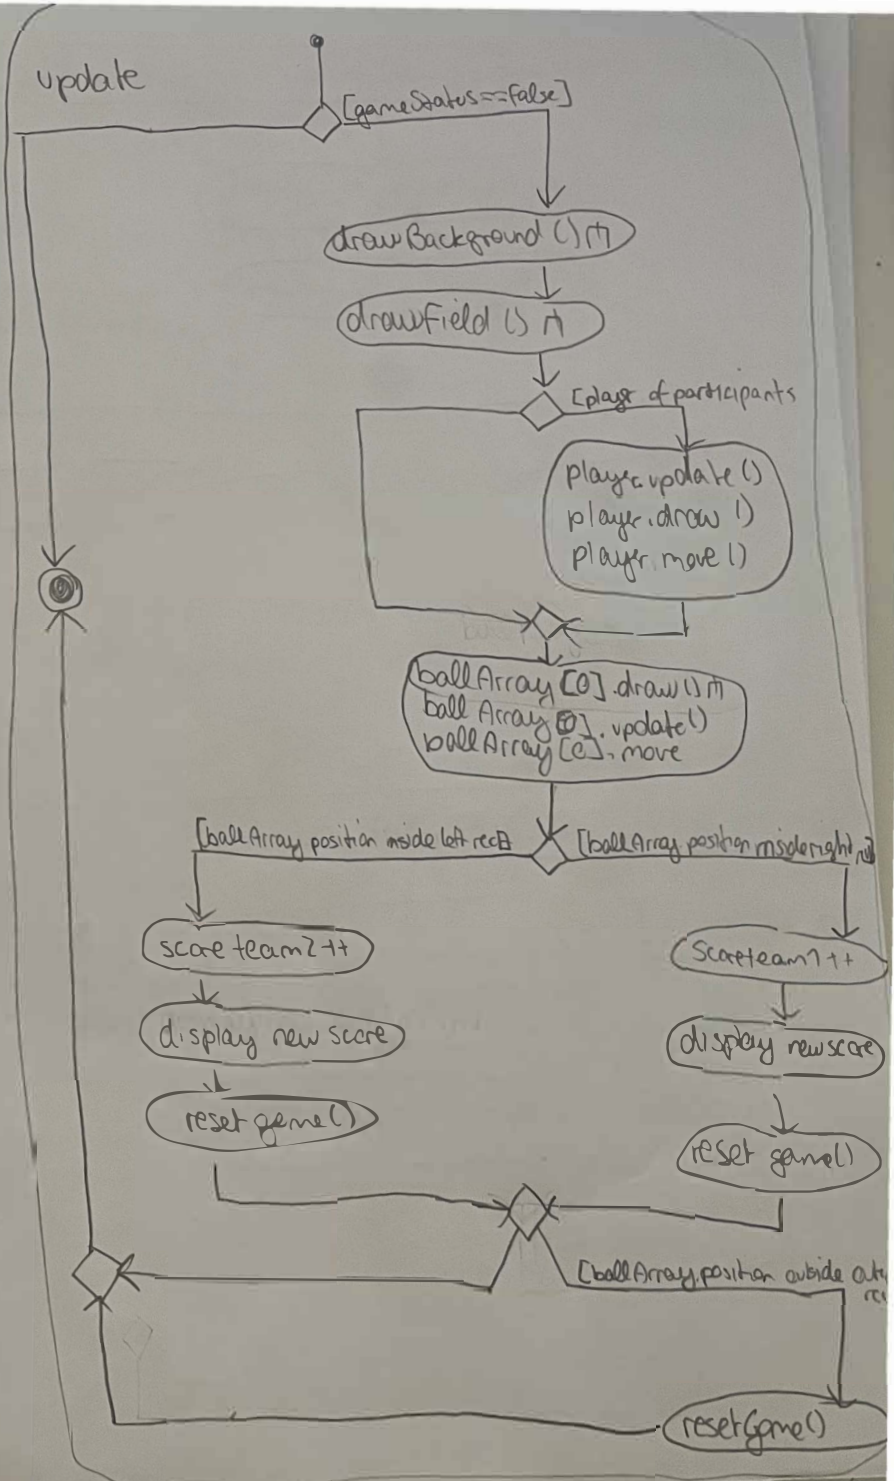 update
[gameStatus==false]
drawBackground()
drawField()
[player of participants
player.update()
player.draw()
player.move()
ballArray[0].draw()
ballArray[0].update()
ballArray[0].move
[ballArray position inside left rect]
[ballArray.position inside right
score team2++
scoreteam1++
display new score
display newscore
reset game()
reset game()
[ballArray.position outside
resetGame()